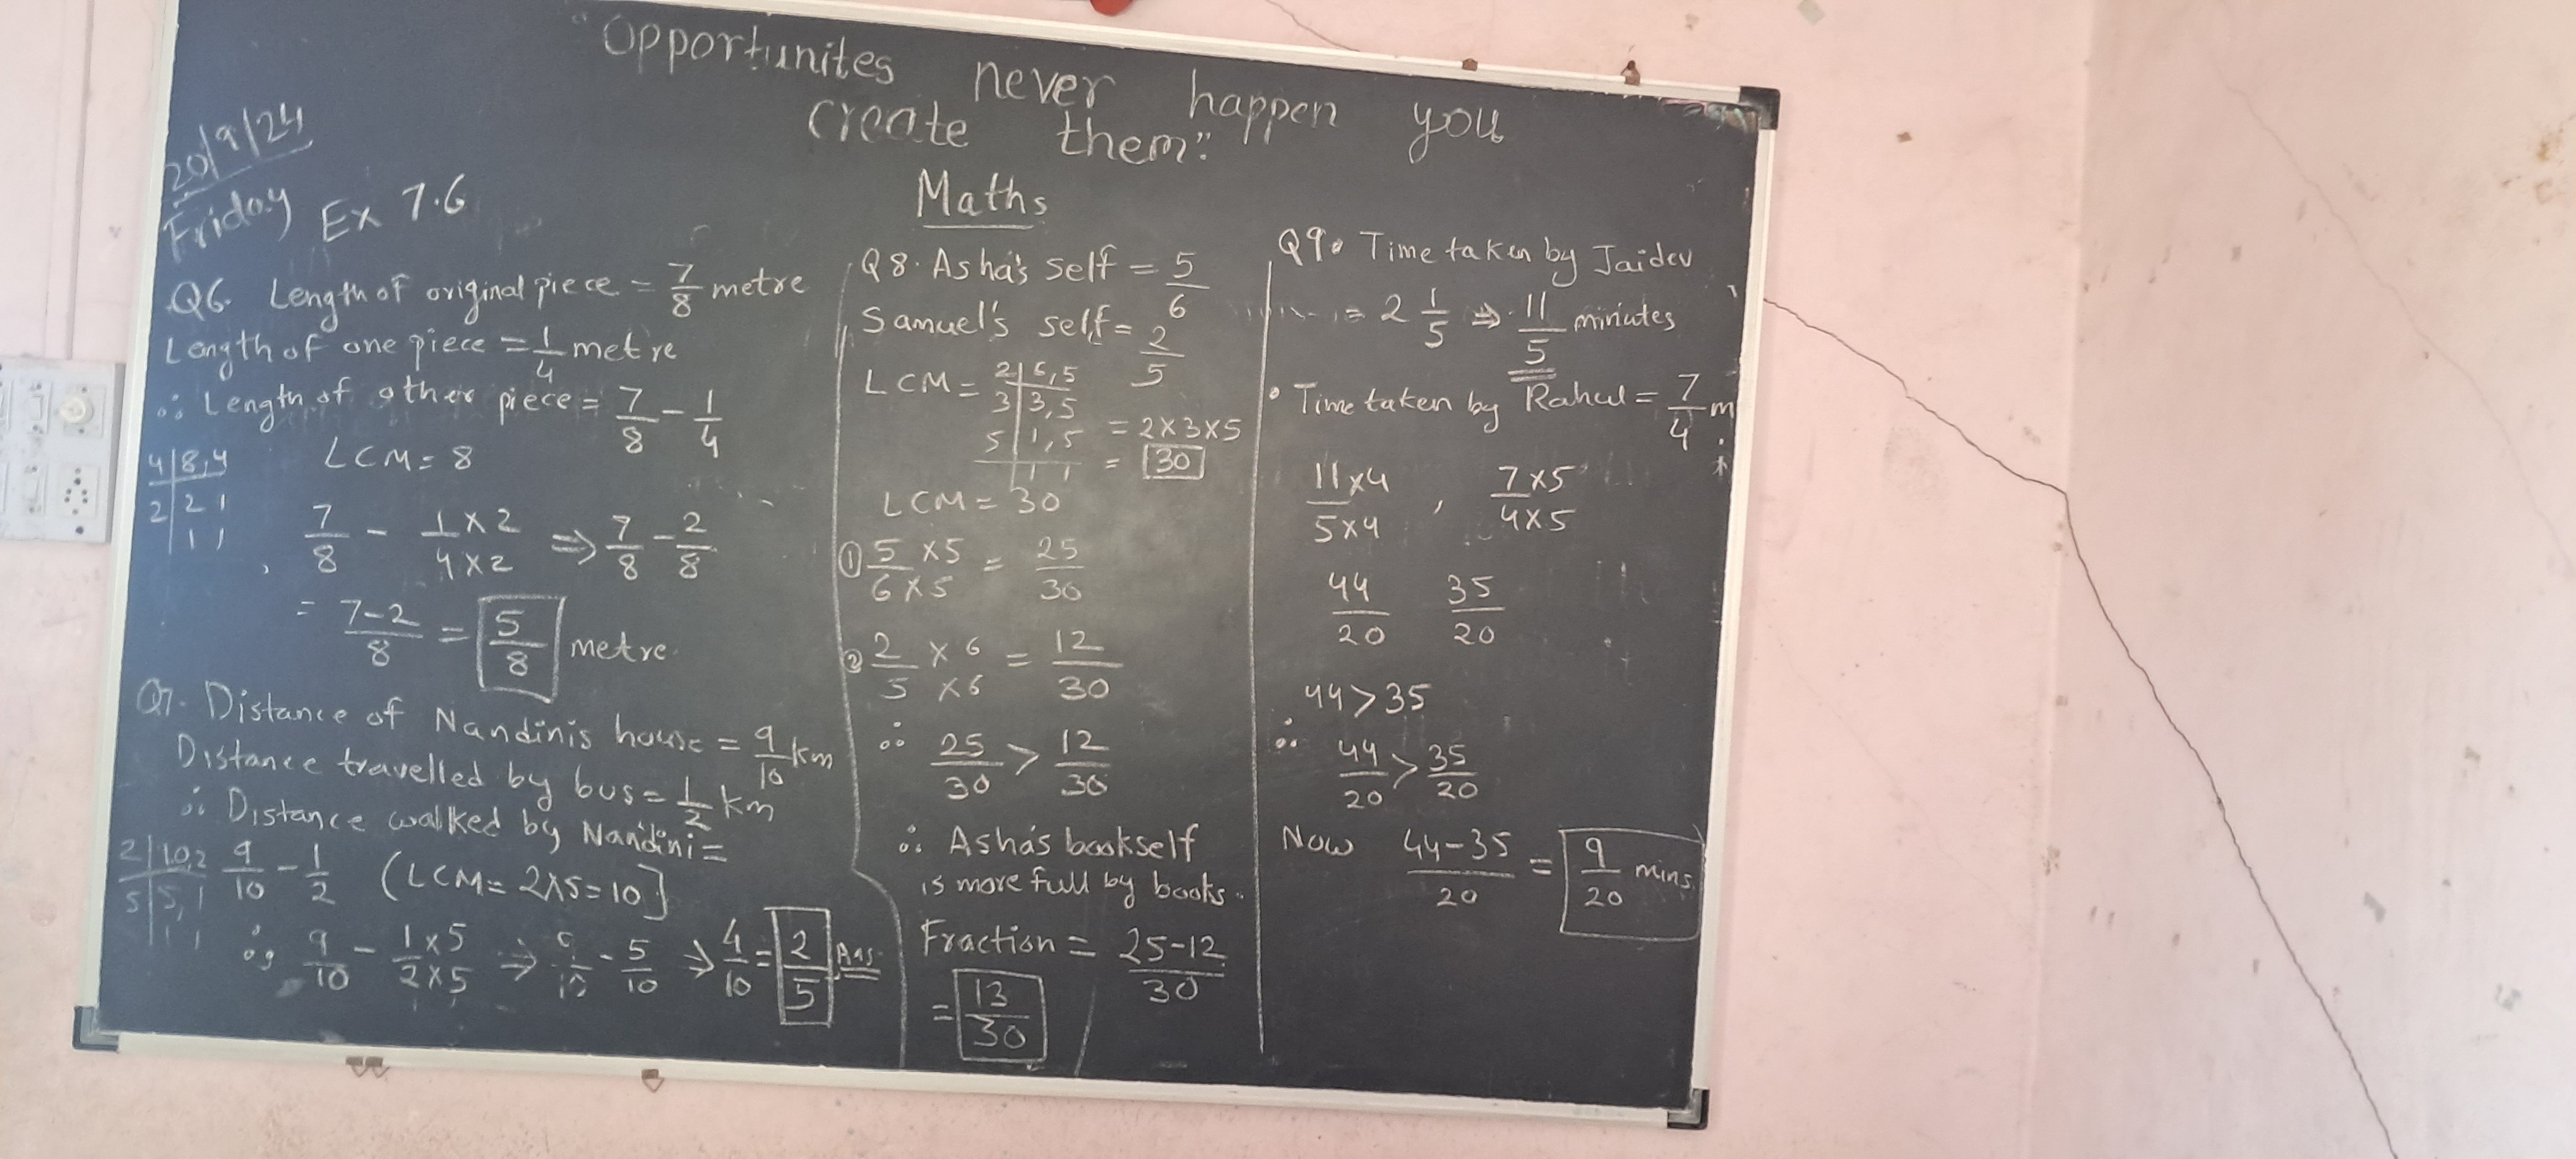 "Opportunites never happen you
create them"
20/9/24
Friday
Ex 7.6
Maths
Q6. Length of original piece = 7/8 metre
Length of one piece = 1/4 metre
∴ Length of other piece = 7/8 - 1/4
4 | 8,4
2 | 2 1
| 1 1
LCM = 8
7/8 - 1×2/4×2 ⇒ 7/8 - 2/8
= 7-2/8 = 5/8 metre.
Q7. Distance of Nandinis house = 9/10 km
Distance travelled by bus = 1/2 km
∴ Distance walked by Nandini =
2 | 10,2
5 | 5,1
| 1 1
9/10 - 1/2 (LCM = 2×5=10]
∴ 9/10 - 1×5/2×5 ⇒ 9/10 - 5/10 ⇒ 4/10 = 2/5 Ans.
Q8. Asha's self = 5/6
Samuel's self = 2/5
LCM = 2 | 6,5
3 | 3,5
5 | 1,5 = 2×3×5
| 1 1 = 30
LCM = 30
① 5×5/6×5 = 25/30
② 2×6/5×6 = 12/30
∴ 25/30 > 12/30
∴ Asha's bookself
is more full by books.
Fraction = 25-12/30
= 13/30
Q9. Time taken by Jaidev
= 2 1/5 ⇒ 11/5 minutes
• Time taken by Rahul = 7/4 m
11×4/5×4 , 7×5/4×5
44/20 35/20
44>35
∴ 44/20 > 35/20
Now 44-35/20 = 9/20 mins.